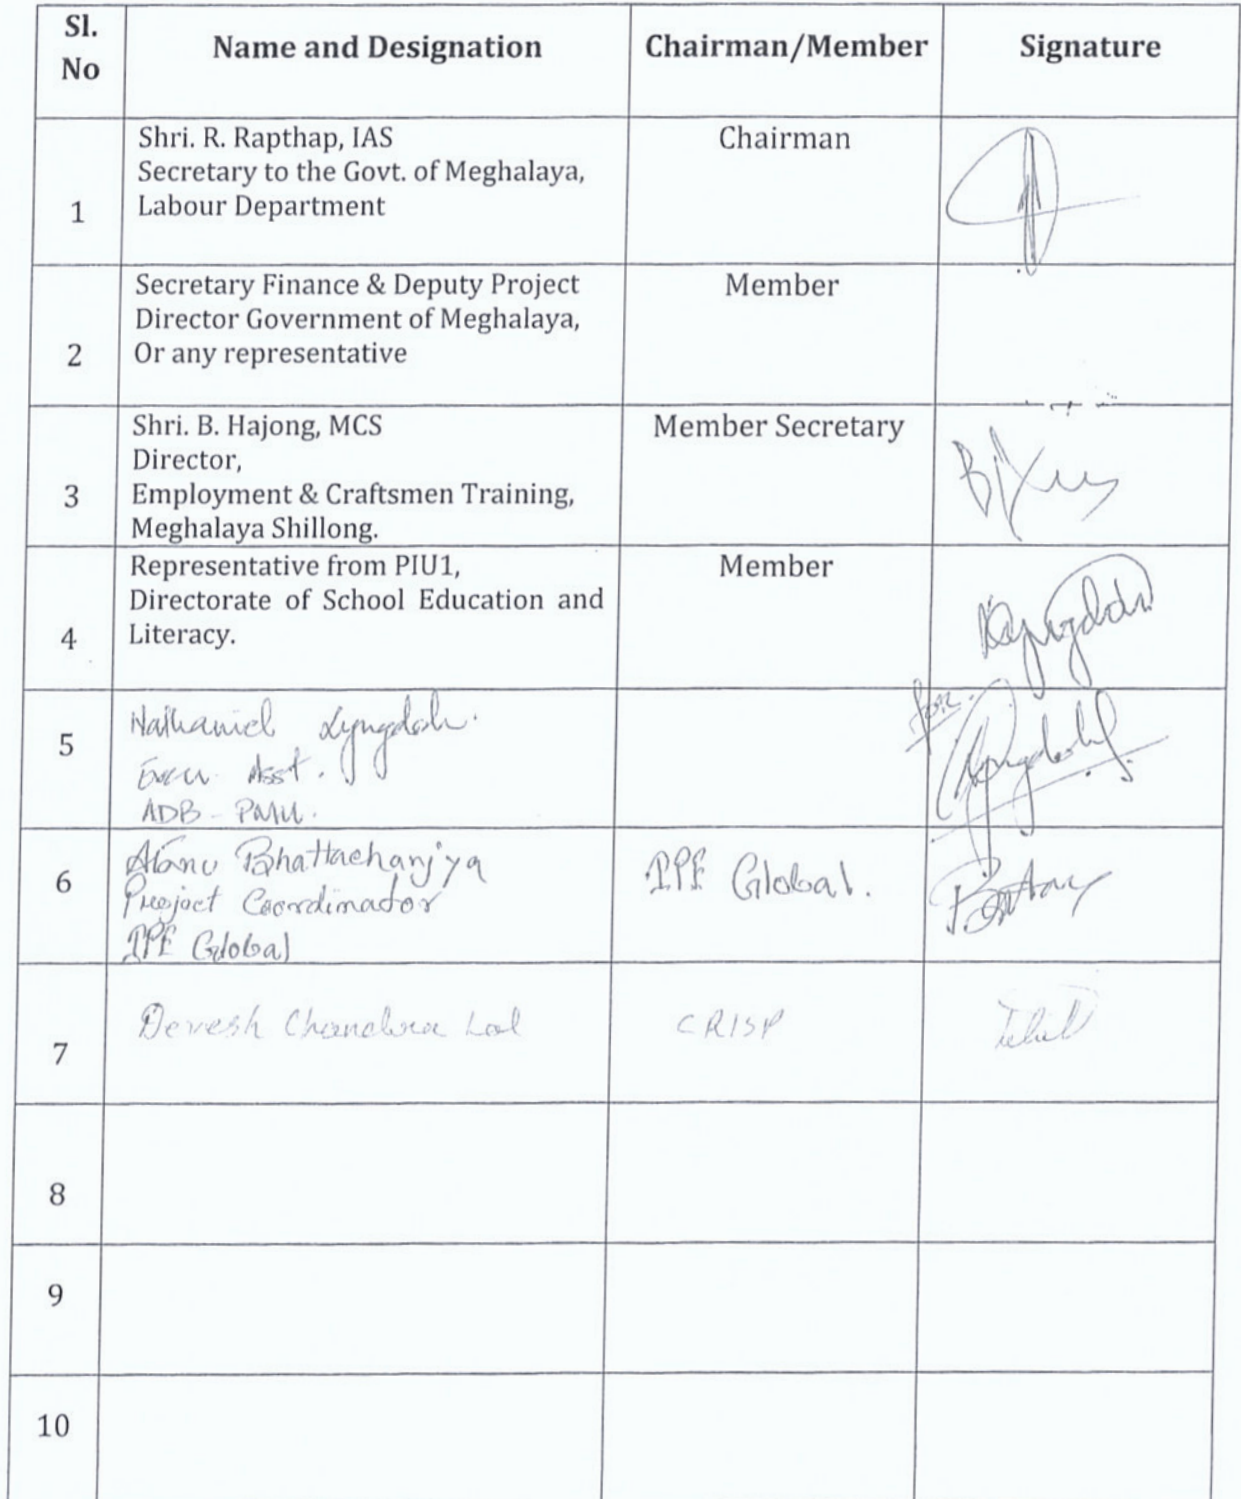 Sl. No
Name and Designation
Chairman/Member
Signature
1
Shri. R. Rapthap, IAS
Secretary to the Govt. of Meghalaya,
Labour Department
Chairman
2
Secretary Finance & Deputy Project
Director Government of Meghalaya,
Or any representative
Member
3
Shri. B. Hajong, MCS
Director,
Employment & Craftsmen Training,
Meghalaya Shillong.
Member Secretary
4
Representative from PIU1,
Directorate of School Education and
Literacy.
Member
5
Nathaniel Lyngdoh.
Asst.
ADB - PMU.
for.
6
Atanu Bhattacharjya
Project Coordinator
IPE Global
IPE Global.
7
Devesh Chandra Lal
CRISP
8
9
10